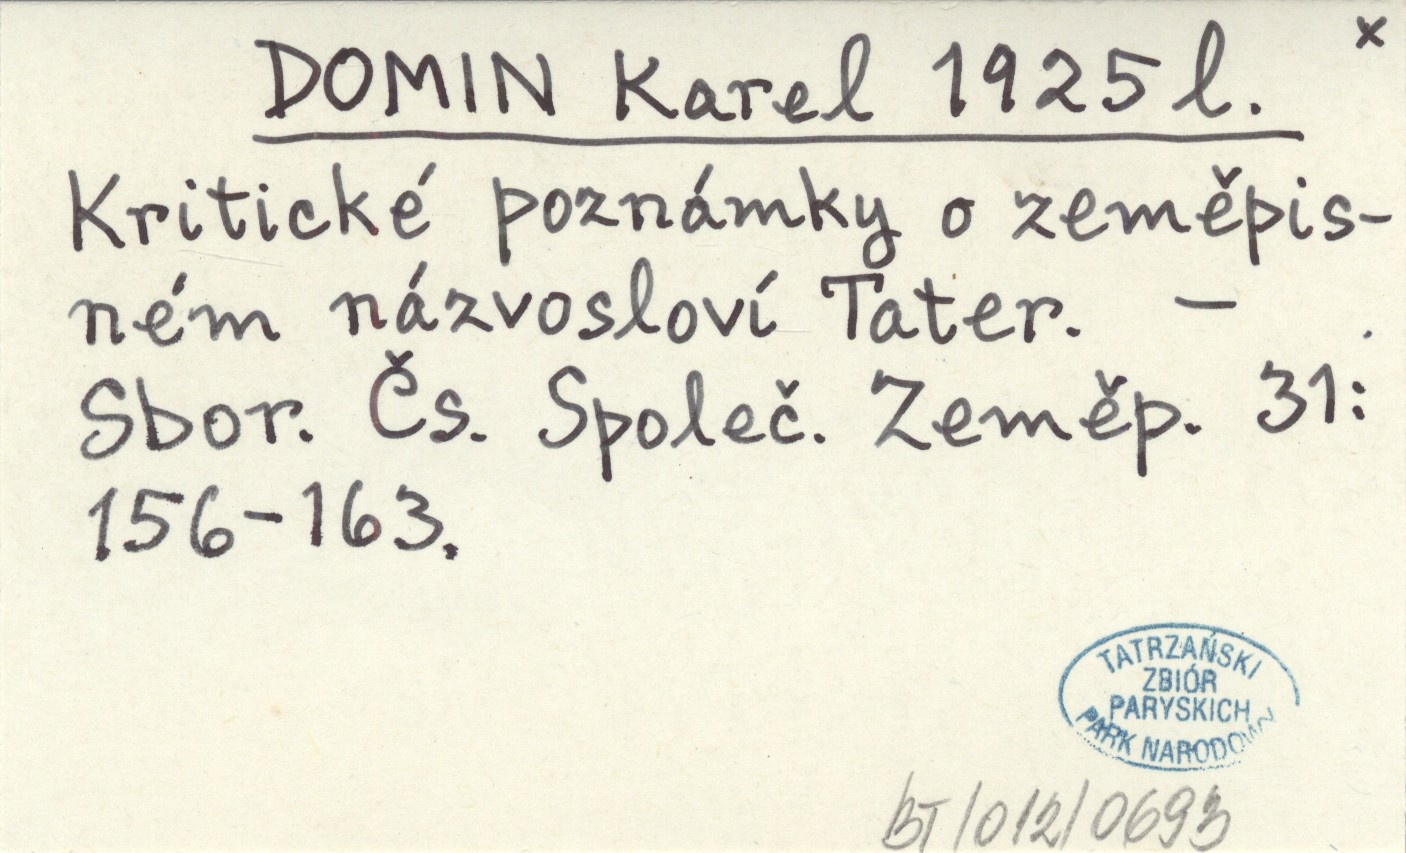 x
DOMIN Karel 1925 l.
Kritické poznámky o zeměpis-
ném názvosloví Tater. –
Sbor. Čs. Společ. Zeměp. 31:
156-163.
TATRZAŃSKI
ZBIÓR
PARYSKICH
PARK NARODOWY
BT/012/0693